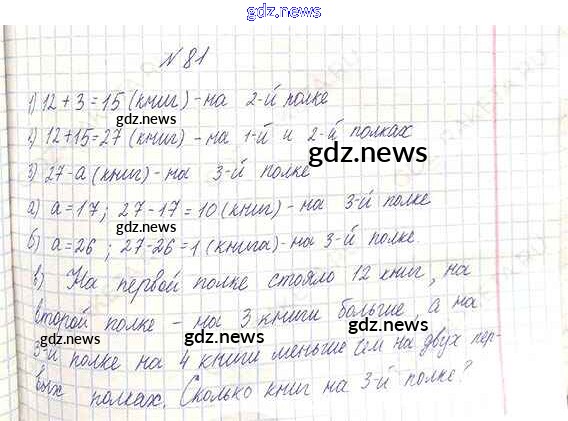 gdz.news
№ 81
1) 12 + 3 = 15 (книг) - на 2-й полке
2) 12+15=27 (книг) - на 1-й и 2-й полках
gdz.news
3) 27-а (книг) - на 3-й полке
а) а=17; 27-17=10 (книг) - на 3-й полке
б) а=26; 27-26=1 (книга) - на 3-й полке.
gdz.news
в) На первой полке стояло 12 книг, на
второй полке - на 3 книги больше, а на
gdz.news gdz.news
3-й полке на 4 книги меньше чем на двух пер-
вых полках. Сколько книг на 3-й полке?
gdz.news